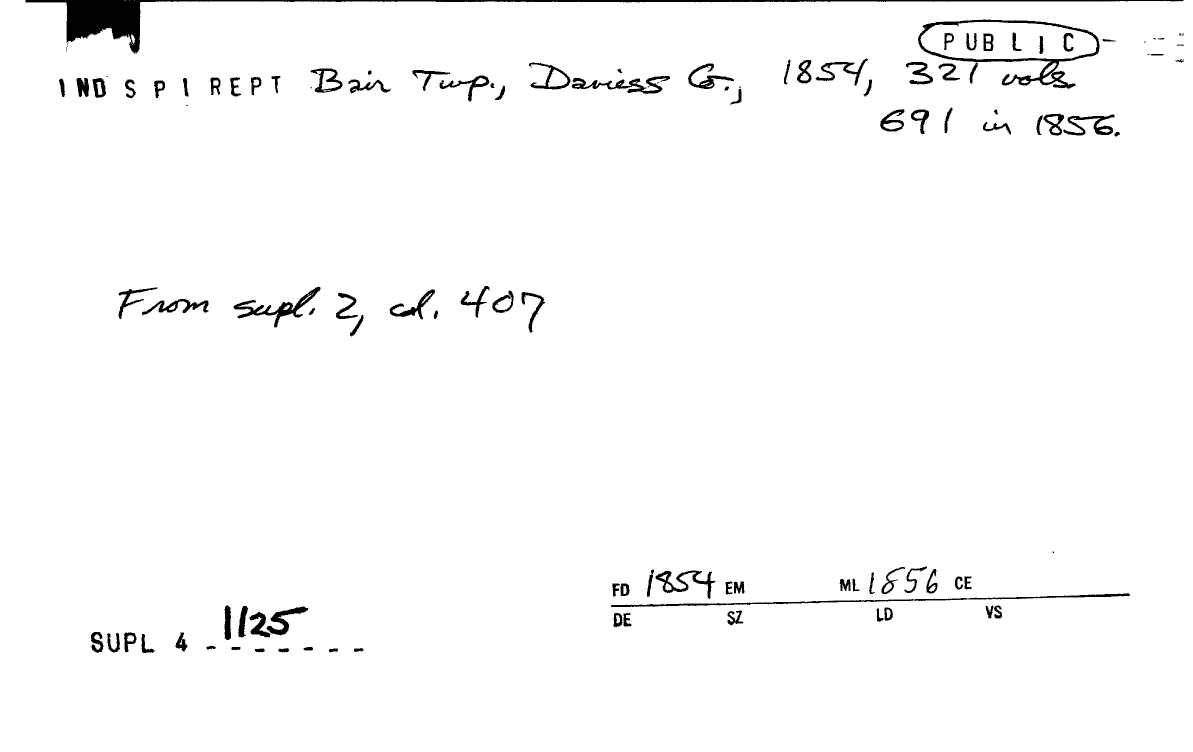 PUBLIC
IND SPI REPT Bair Twp., Daviess Co., 1854, 321 vols.
691 in 1856.
From supl. 2, col. 407
FD 1854 EM ML 1856 CE
DE SZ LD VS
SUPL 4 1125